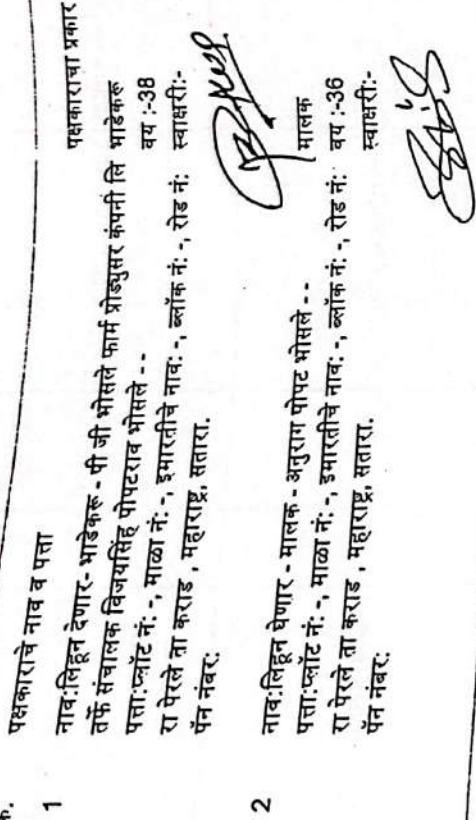 क्र.
पक्षकाराचे नाव व पत्ता
पक्षकाराचा प्रकार
1
नाव:लिहून देणार- भाडेकरू - पी जी भोसले फार्म प्रोड्युसर कंपनी लि
तर्फे संचालक विजयसिंह पोपटराव भोसले - -
पत्ता:प्लॉट नं: -, माळा नं: -, इमारतीचे नाव: -, ब्लॉक नं: -, रोड नं:
रा पेरले ता कराड , महाराष्ट्र, सतारा.
पॅन नंबर:
भाडेकरू
वय :-38
स्वाक्षरी:-
2
नाव:लिहून घेणार - मालक - अनुराग पोपट भोसले - -
पत्ता:प्लॉट नं: -, माळा नं: -, इमारतीचे नाव: -, ब्लॉक नं: -, रोड नं:
रा पेरले ता कराड , महाराष्ट्र, सतारा.
पॅन नंबर:
मालक
वय :-36
स्वाक्षरी:-